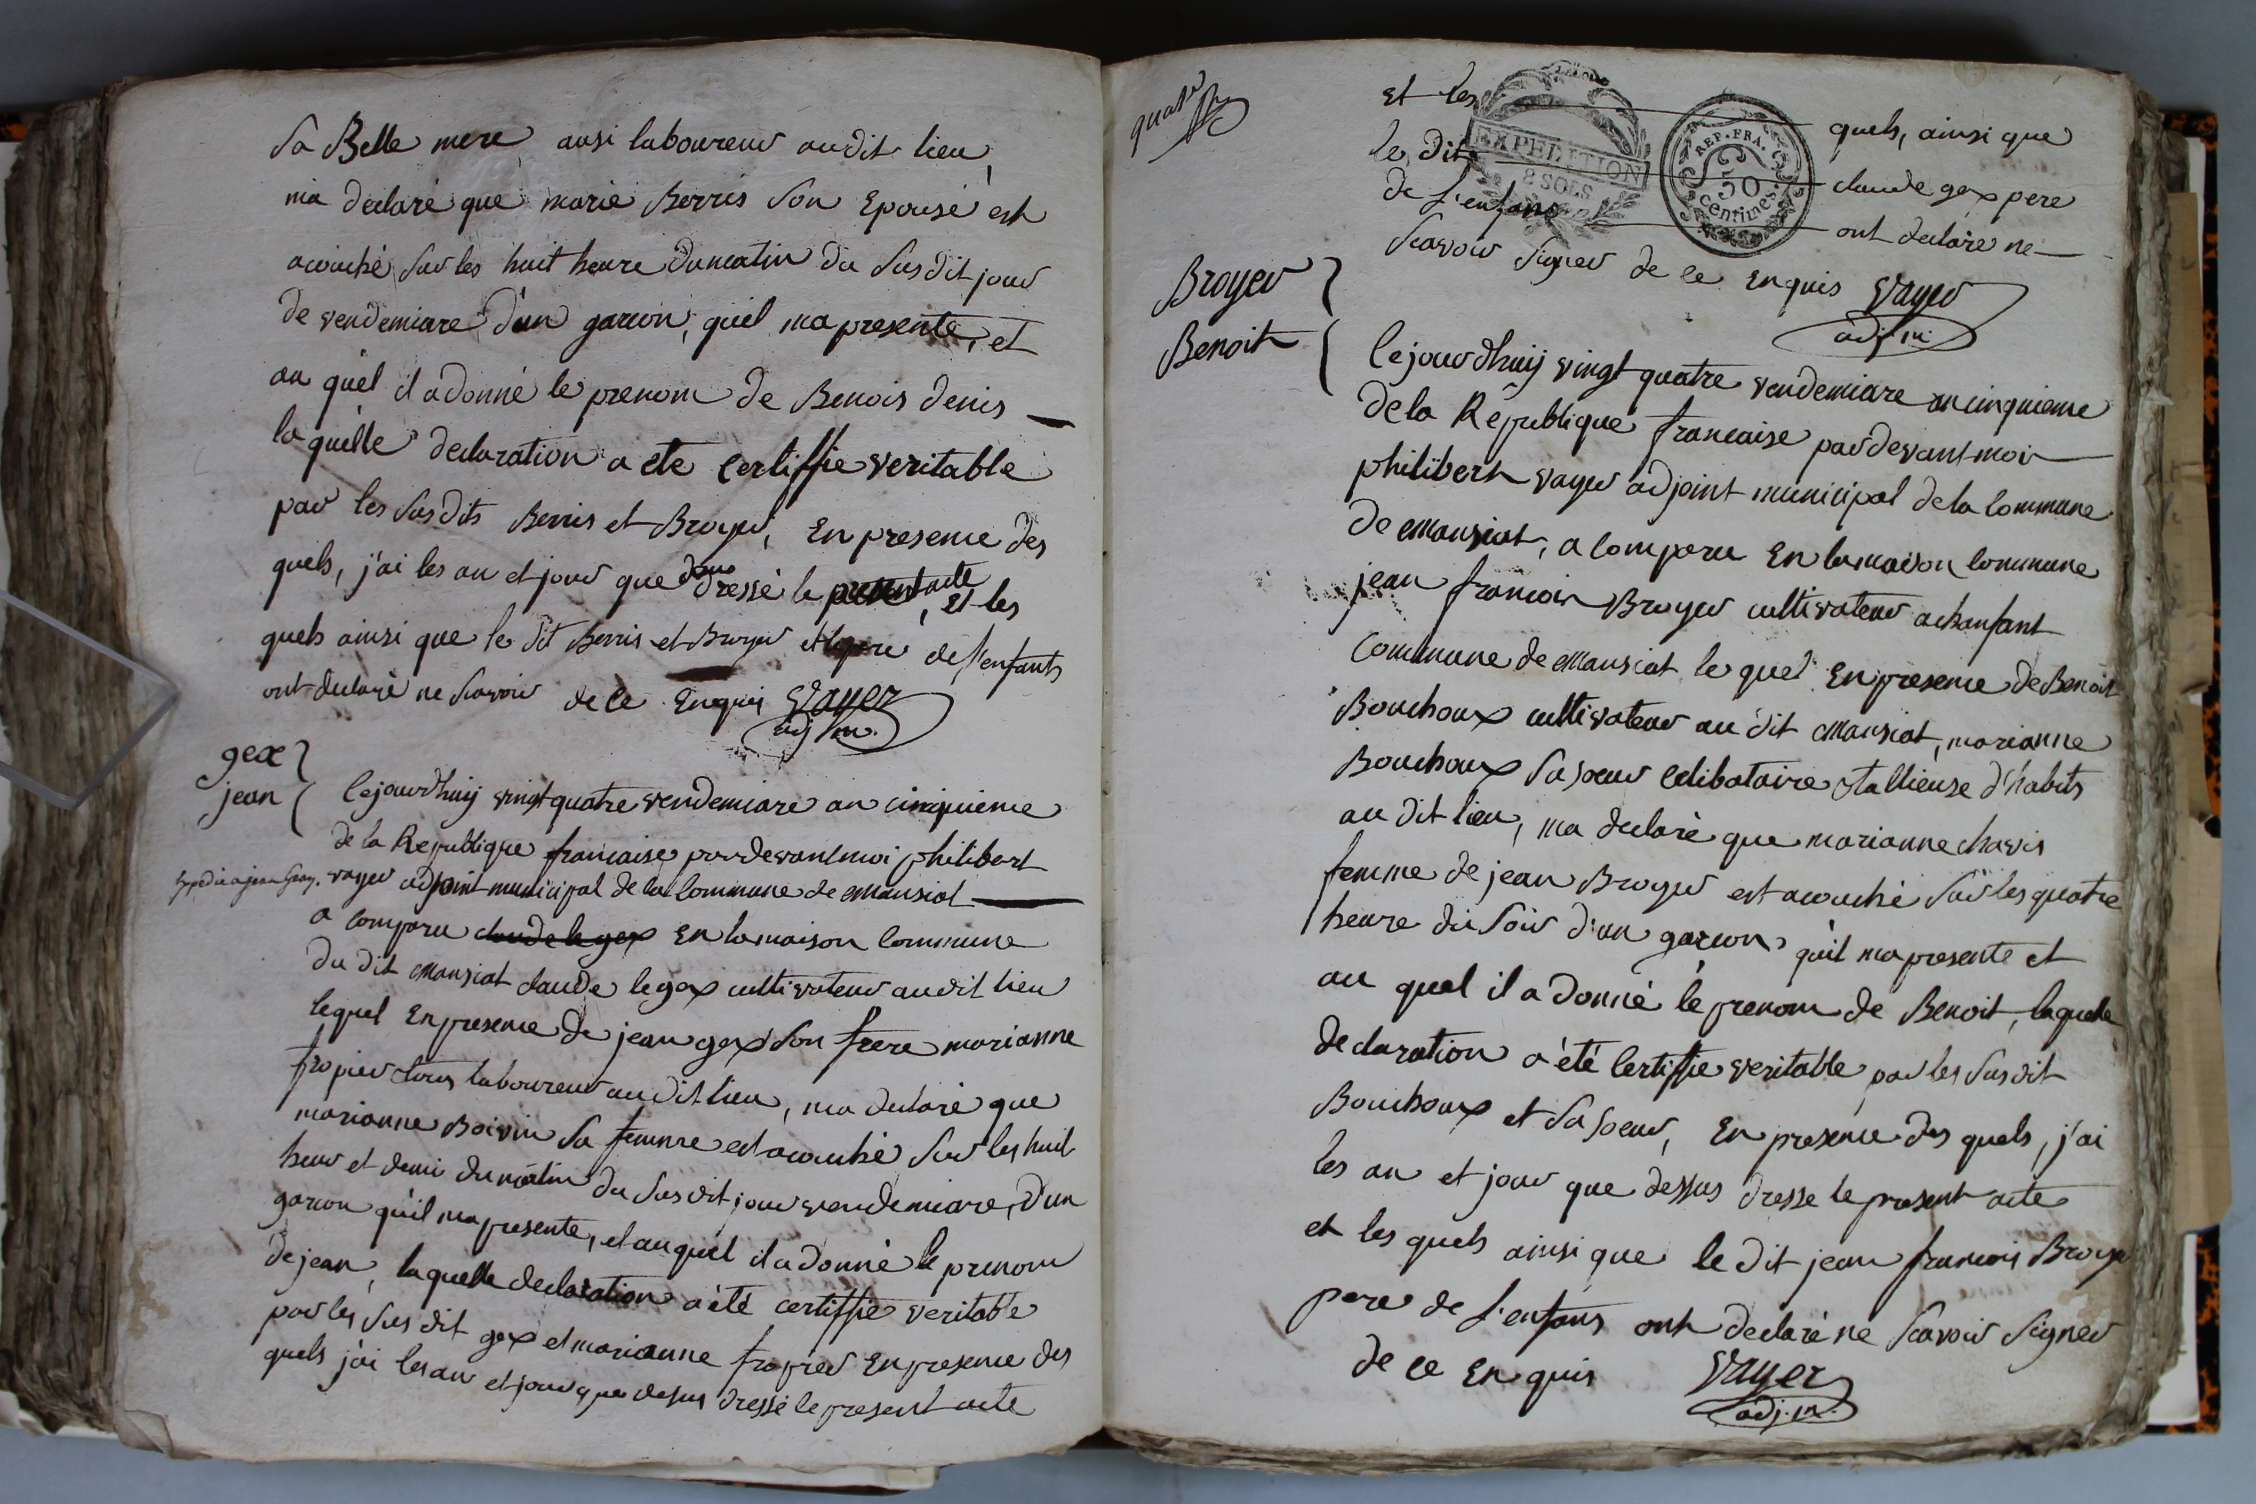 sa Belle mere ausi laboureur audit lieu,
ma declaré que marie Berris son Epouse est
acouché sur les huit heure dumatin du susdit jour
de vendemiare d'un garcon, quil ma presente, et
au quel il adonné le prenom de Benois denis
la quelle declaration a ete certiffie veritable
par les susdits Berris et Broyer, En presence des
quels, j'ai les an et jour que dressé le present acte, Et les
quels ainsi que le dit Berris et Broyer et le pere de l'enfants
ont declaré ne scavoir de ce Enquis Vayer
adj m.
gex
jean
lejourdhuy vingt quatre vendemiare an cinquieme
de la Republique francaise pardevantmoi philibert
vayer adjoint municipal de la Commune de Mansiat
a comparu claude le gex En lamaison Commune
du dit Mansiat claude le gex cultivateur audit lieu
lequel En presence de jean gex son frere marianne
tropier tous laboureur au dit lieu, ma declaré que
marianne Boivin sa femme est acouché sur les huit
heur et demi dumatin du susdit jour vendemiare, d'un
garcon quil ma presente, et auquel il adonné le prenom
de jean, laquelle declaration a été certiffie veritable
par les sus dit gex et marianne tropier En presence des
quels j'ai les an et jour que desus dressé le present acte
expedié a jean Gex.
quatre
et les quels, ainsi que
le dit claude gex pere
de l'enfans ont declare ne
scavoir signer de ce Enquis Vayer
adj. m
EXPEDITION
8 SOLS
REP. FRA.
50
centimes.
Broyer
Benoit
lejourdhuy vingt quatre vendemiare an cinquieme
dela Republique francaise pardevant moi
philibert vayer adjoint municipal dela Commune
de Mansiat, a comparu En lamaison Commune
jean francois Broyer cultivateur achanfant
Commune de Mansiat le quel En presence de Benoit
Bouchoux cultivateur au dit Mansiat, marianne
Bouchoux sa soeur celibataire tallieuse d'habits
au dit lieu, ma declaré que marianne chavis
femme de jean Broyer est acouché sur les quatre
heure du soir d'un garcon, quil ma presenté et
au quel il a donné le prenom de Benoit, laquelle
declaration a été certiffie veritable par les susdit
Bouchoux et sa soeur, En presence des quels, j'ai
les an et jour que dessus dresse le present acte
et les quels ainsi que le dit jean francois Broye
pere de l'enfans ont declaré ne scavoir signer
de ce Enquis Vayer
adj. m.